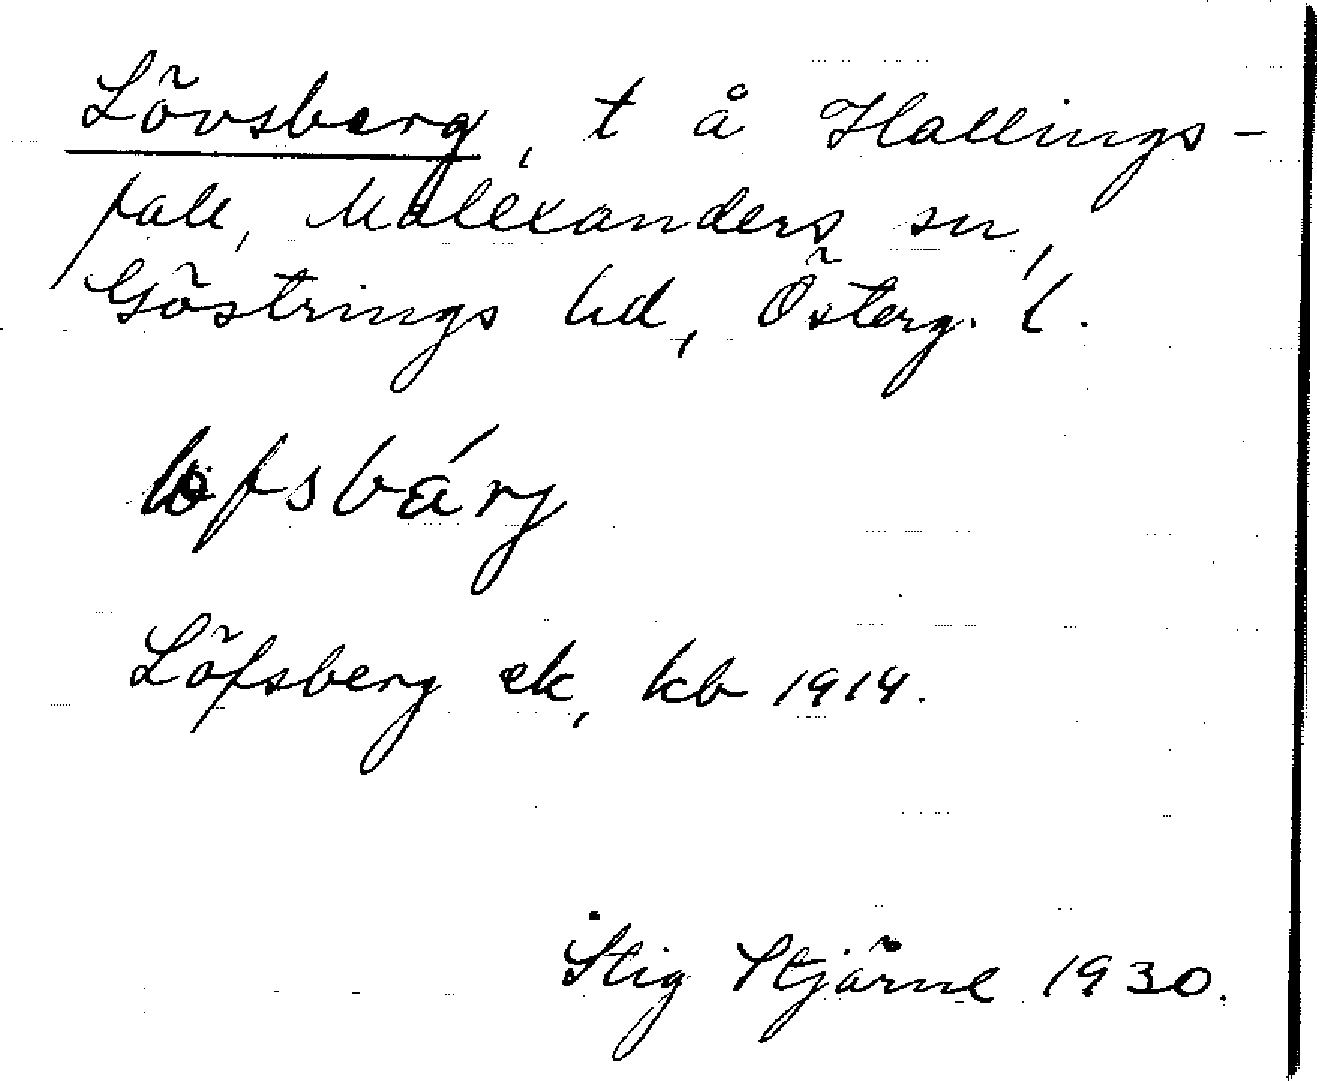 Lövsberg, t å Hallings-
fall, Malexanders sn,
Göstrings hd, Österg. l.
Löfsberg ek, kb 1914.
Stig Stjärne 1930.